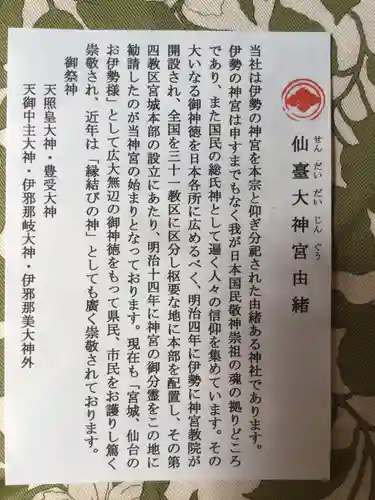 仙臺大神宮由緒
せんだいだいじんぐう
当社は伊勢の神宮を本宗と仰ぎ分祀された由緒ある神社であります。
伊勢の神宮は申すまでもなく我が日本国民敬神崇祖の魂の拠りどころ
であり、また国民の総氏神として遍く人々の信仰を集めています。その
大いなる御神徳を日本各所に広めるべく、明治四年に伊勢に神宮教院が
開設され、全国を三十一教区に区分し枢要な地に本部を配置し、その第
四教区宮城本部の設立にあたり、明治十四年に神宮の御分霊をこの地に
勧請したのが当神宮の始まりとなっております。現在も「宮城、仙台の
お伊勢様」として広大無辺の御神徳をもって県民、市民をお護りし篤く
崇敬され、近年は「縁結びの神」としても廣く崇敬されております。
御祭神
天照皇大神・豊受大神
天御中主大神・伊邪那岐大神・伊邪那美大神外